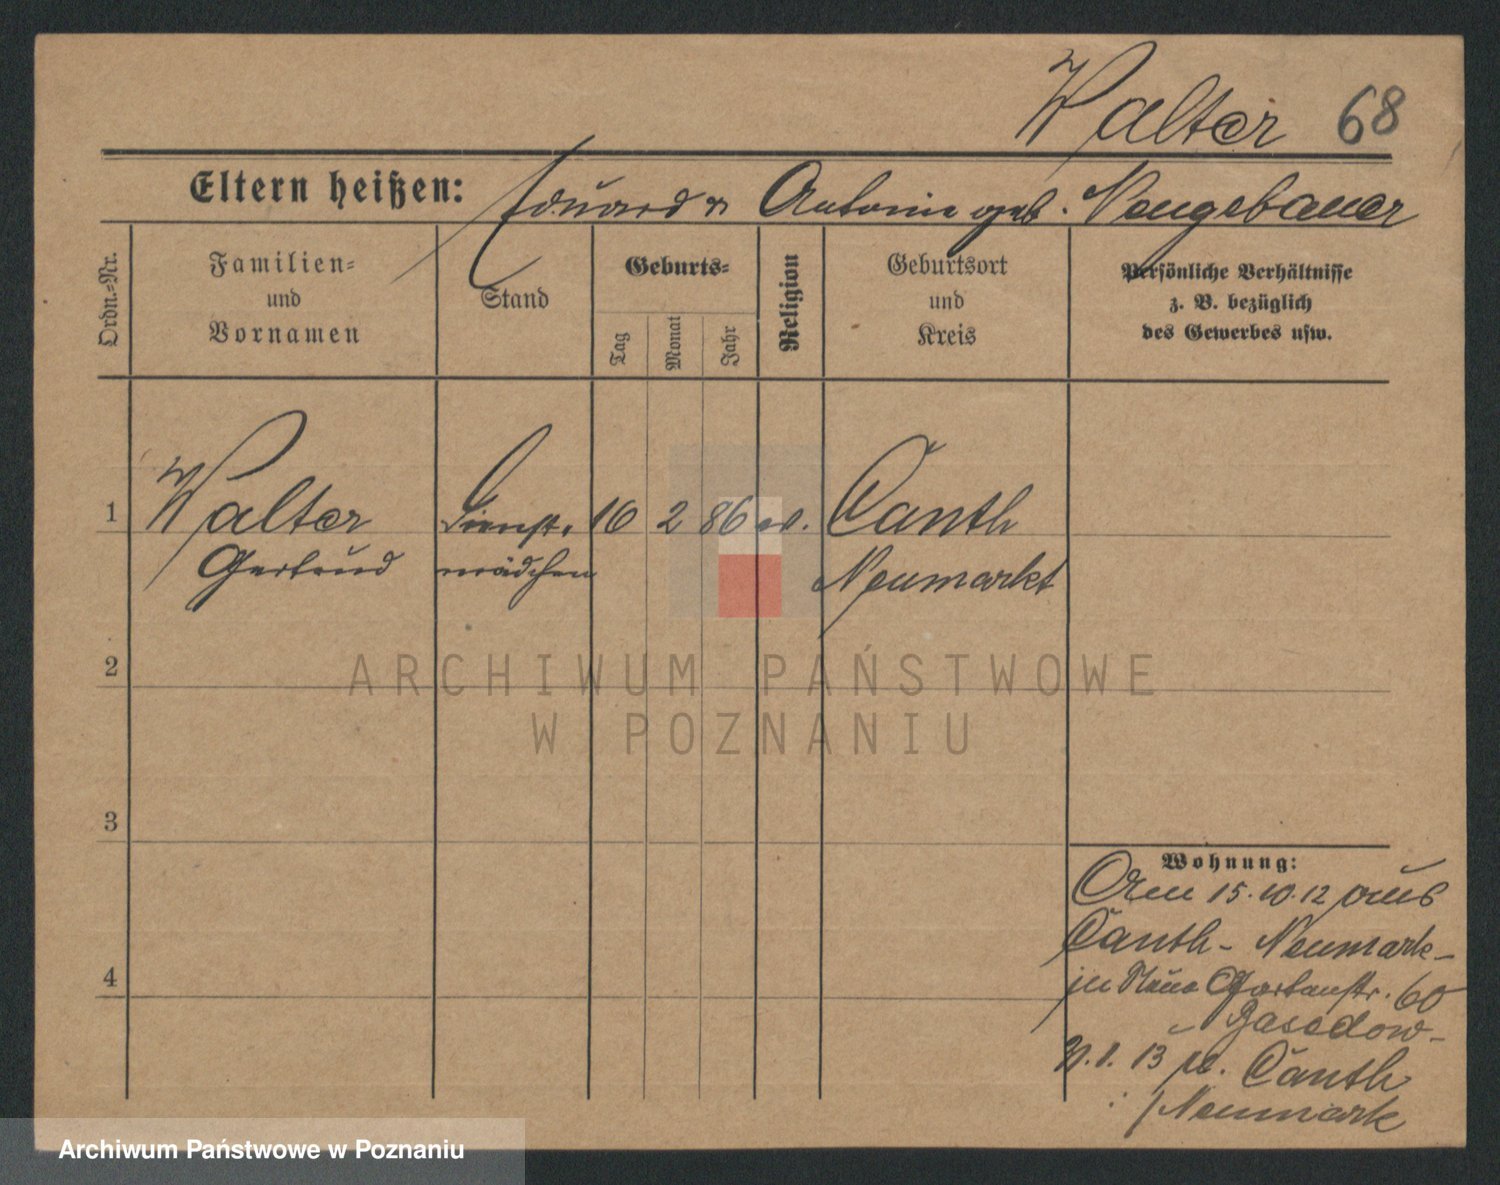 Walter 68
Eltern heißen: Eduard u Antonie geb. Neugebauer
Ordn.=Nr.
Familien=
und
Vornamen
Stand
Geburts=
Tag
Monat
Jahr
Religion
Geburtsort
und
Kreis
Persönliche Verhältnisse
z. B. bezüglich
des Gewerbes usw.
1 Walter Dienst= 16 2 86 ev. Canth
Gertrud mädchen Neumarkt
2
ARCHIWUM PAŃSTWOWE
W POZNANIU
3
Wohnung:
Am 15.10.12 aus
Canth- Neumark-
Gartenstr. 60
Basedow-
1. 13 Canth
Neumark
4
Archiwum Państwowe w Poznaniu